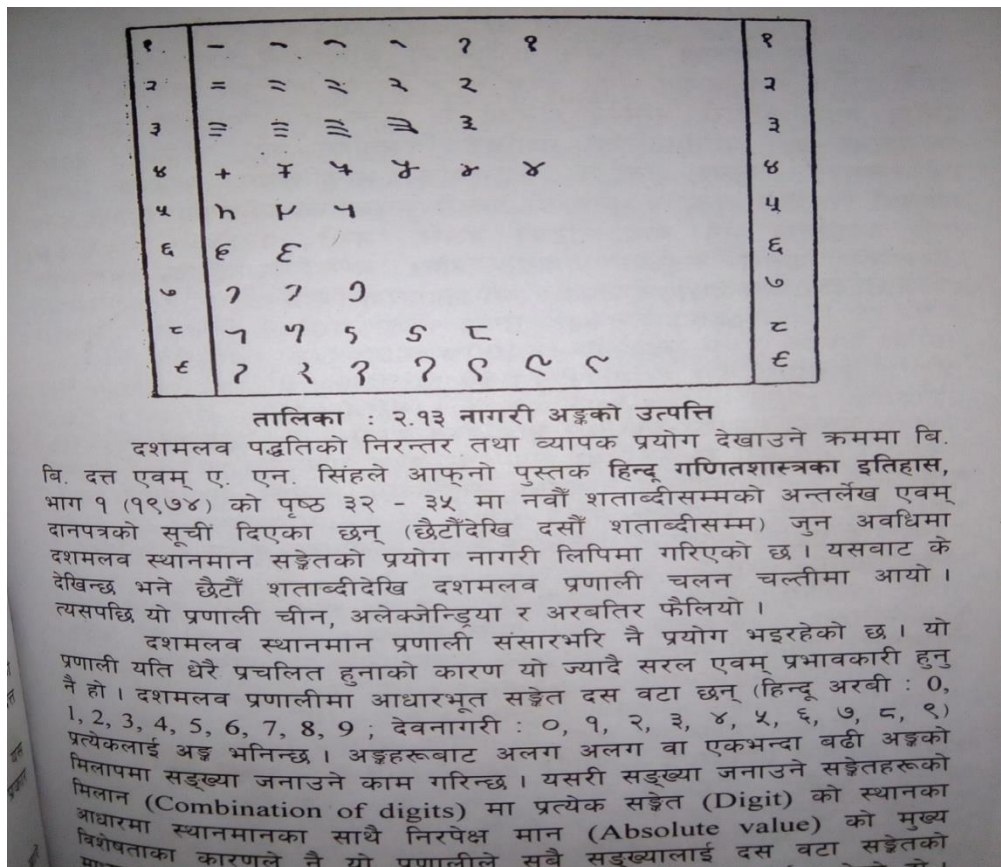 १ १
२ २
३ ३
४ ४
५ ५
६ ६
७ ७
८ ८
तालिका : २.१३ नागरी अङ्कको उत्पत्ति
दशमलव पद्धतिको निरन्तर तथा व्यापक प्रयोग देखाउने क्रममा बि.
बि. दत्त एवम् ए. एन. सिंहले आफ्नो पुस्तक हिन्दू गणितशास्त्रका इतिहास,
भाग १ (१९७४) को पृष्ठ ३२ - ३५ मा नवौं शताब्दीसम्मको अन्तर्लेख एवम्
दानपत्रको सूची दिएका छन् (छैटौंदेखि दसौं शताब्दीसम्म) जुन अवधिमा
दशमलव स्थानमान सङ्केतको प्रयोग नागरी लिपिमा गरिएको छ । यसबाट के
देखिन्छ भने छैटौं शताब्दीदेखि दशमलव प्रणाली चलन चल्तीमा आयो ।
त्यसपछि यो प्रणाली चीन, अलेक्जेन्ड्रिया र अरबतिर फैलियो ।
दशमलव स्थानमान प्रणाली संसारभरि नै प्रयोग भइरहेको छ । यो
प्रणाली यति धेरै प्रचलित हुनाको कारण यो ज्यादै सरल एवम् प्रभावकारी हुनु
नै हो । दशमलव प्रणालीमा आधारभूत सङ्केत दस वटा छन् (हिन्दू अरबी : 0,
1, 2, 3, 4, 5, 6, 7, 8, 9 ; देवनागरी : ०, १, २, ३, ४, ५, ६, ७, ८, ९)
प्रत्येकलाई अङ्क भनिन्छ । अङ्कहरूबाट अलग अलग वा एकभन्दा बढी अङ्कको
मिलापमा सङ्ख्या जनाउने काम गरिन्छ । यसरी सङ्ख्या जनाउने सङ्केतहरूको
मिलान (Combination of digits) मा प्रत्येक सङ्केत (Digit) को स्थानका
आधारमा स्थानमानका साथै निरपेक्ष मान (Absolute value) को मुख्य
विशेषताका कारणले नै यो प्रणालीले सबै सङ्ख्यालाई दस वटा सङ्केतको